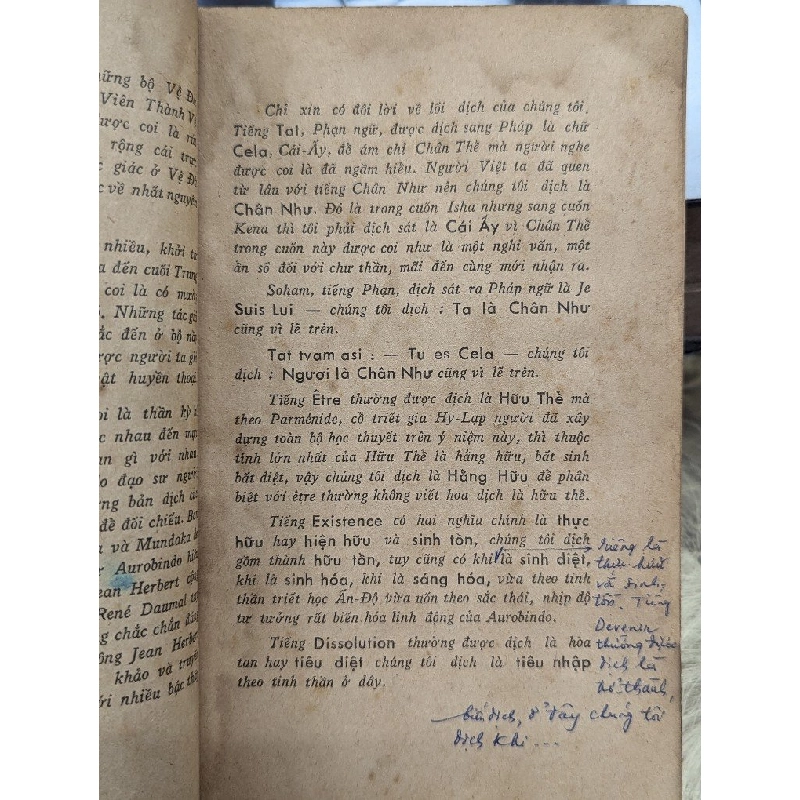 ững bộ Vệ Đ
Viên Thành
ược coi là
rộng cái
giác ở Vệ Đ
về nhất nguyên
nhiều, khởi
a đến cuối
coi là có
. Những tác
đến ở bộ này
ược người ta
huyền thoại
i là thần kỳ
nhau đến
gì với nhau
đạo sư người
bản dịch
đề đối chiếu.
và Mundaka
Aurobindo
ean Herbert
René Daumal
chắc chắn
Jean
khảo và
i nhiều bậc
Chỉ xin có đôi lời về lối dịch của chúng tôi.
Tiếng Tat, Phạn ngữ, được dịch sang Pháp là chữ
Cela, Cái-Ấy, để ám chỉ Chân Thể mà người nghe
được coi là đã ngầm hiểu. Người Việt ta đã quen
từ lâu với tiếng Chân Như nên chúng tôi dịch là
Chân Như. Đó là trong cuốn Isha nhưng sang cuốn
Kena thì tôi phải dịch sát là Cái Ấy vì Chân Thể
trong cuốn này được coi như là một nghi vấn, một
ẩn số đối với chư thần, mãi đến cùng mới nhận ra.
Soham, tiếng Phạn, dịch sát ra Pháp ngữ là Je
Suis Lui — chúng tôi dịch : Ta là Chân Như
cũng vì lẽ trên.
Tat tvam asi : — Tu es Cela — chúng tôi
dịch : Ngươi là Chân Như cũng vì lẽ trên.
Tiếng Être thường được dịch là Hữu Thể mà
theo Parménide, cổ triết gia Hy-Lạp người đã xây
dựng toàn bộ học thuyết trên ý niệm này, thì thuộc
tính lớn nhất của Hữu Thể là hằng hữu, bất sinh
bất diệt, vậy chúng tôi dịch là Hằng Hữu để phân
biệt với être thường không viết hoa dịch là hữu thể.
Tiếng Existence có hai nghĩa chính là thực
hữu hay hiện hữu và sinh tồn, chúng tôi dịch
gồm thành hữu tồn, tuy cũng có khi là sinh diệt,
khi là sinh hóa, khi là sáng hóa, vừa theo tinh
thần triết học Ấn-Độ vừa uốn theo sắc thái, nhịp độ
tư tưởng rất biến hóa linh động của Aurobindo.
Tiếng Dissolution thường được dịch là hòa
tan hay tiêu diệt chúng tôi dịch là tiêu nhập
theo tinh thần ở đây.
thực hữu
và sinh
tồn. Tiếng
Devenir
thường được
dịch là
trở thành,
biến dịch, ở đây chúng tôi
dịch khi ...